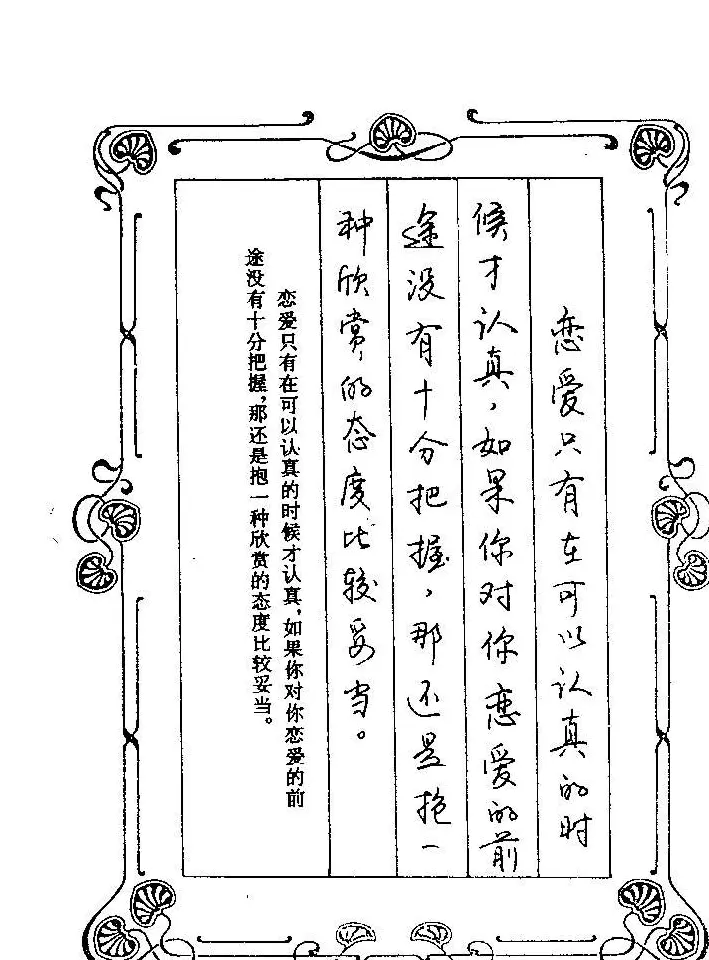 恋爱只有在可以认真的时
候才认真，如果你对你恋爱的前
途没有十分把握，那还是抱一
种欣赏的态度比较妥当。
恋爱只有在可以认真的时候才认真，如果你对你恋爱的前
途没有十分把握，那还是抱一种欣赏的态度比较妥当。